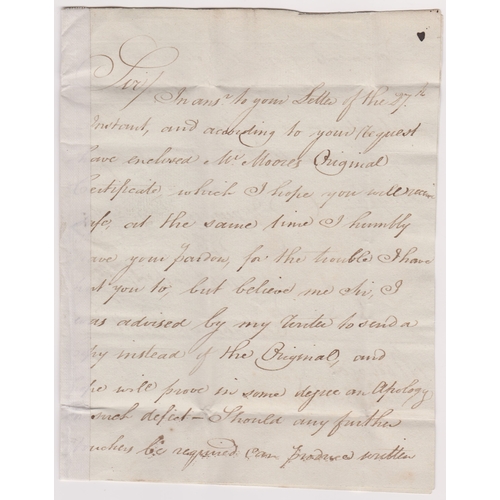 Sir/
In ansr to your Letter of the 27th
Instant, and according to your request
have enclosed Mr Moores Original
Certificate, which I hope you will
safe, at the same time I humbly
crave your pardon, for the trouble I have
put you to, but believe me Sir, I
was advised by my Writer to send a
Copy instead of the Original, and
hope will prove in some degree an Apology
such defect — Should any further
vouchers be required can produce written